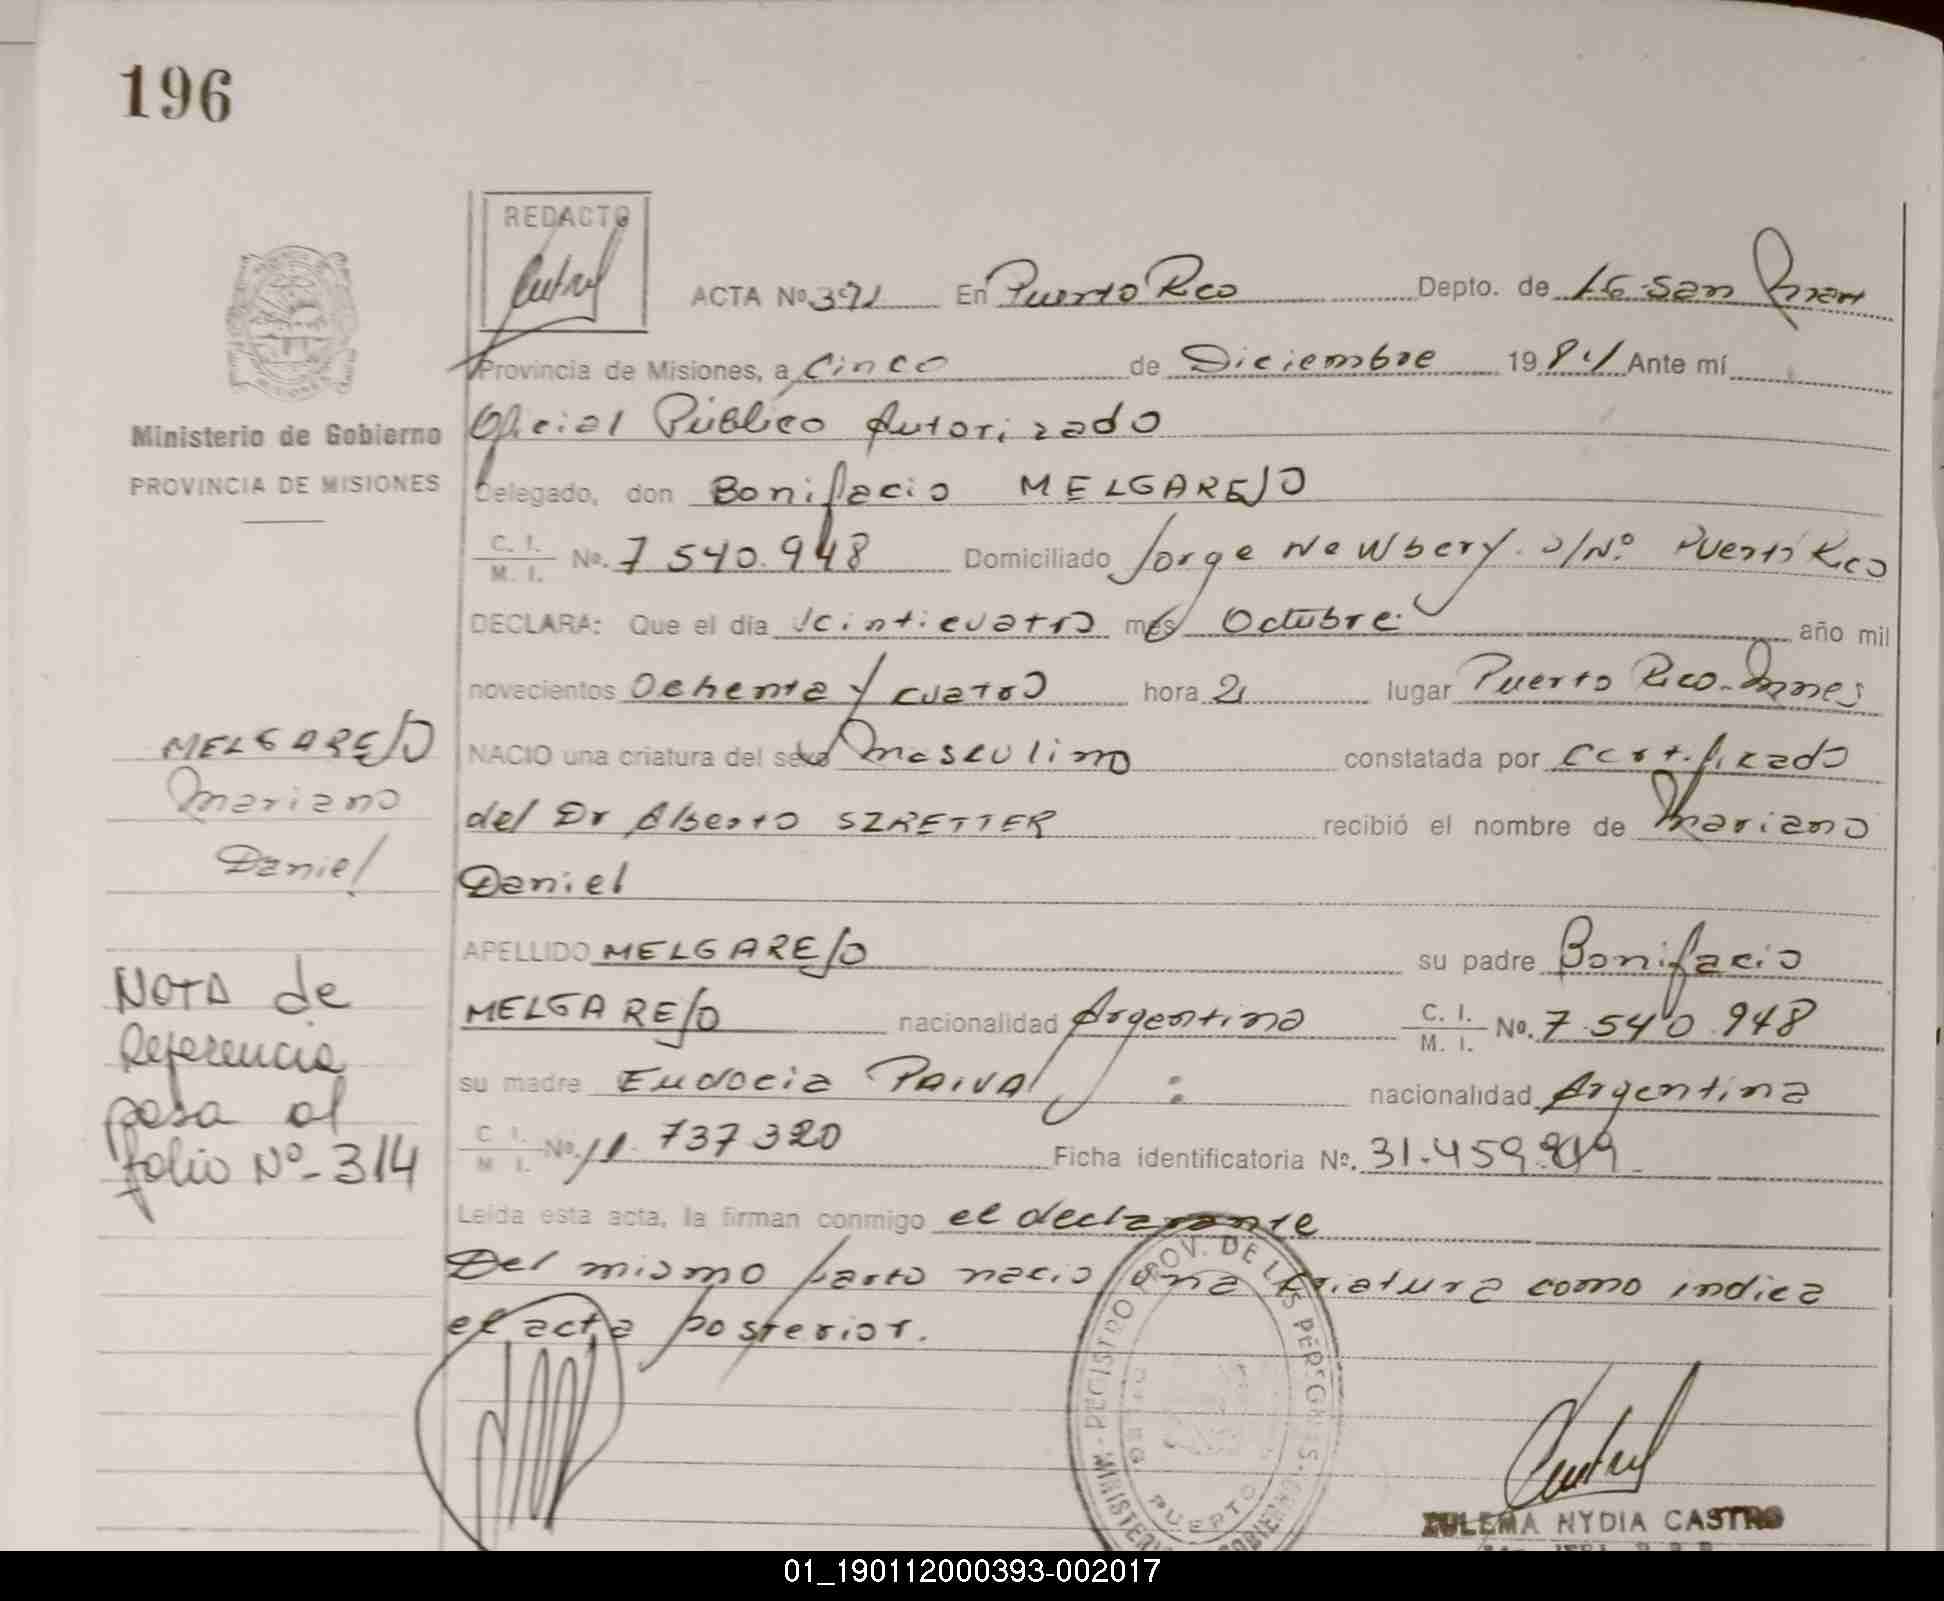 196
REDACTO
ACTA Nº 391 En Puerto Rico Depto. de LG. San Martin
Provincia de Misiones, a Cinco de Diciembre 1984 Ante mí
Oficial Público Autorizado
Ministerio de Gobierno
PROVINCIA DE MISIONES
Delegado, don Bonifacio MELGAREJO
C. I.
M. I.
No. 7 540.948 Domiciliado Jorge Newbery. S/Nº Puerto Rico
DECLARA: Que el día Veinticuatro mes Octubre año mil
novecientos Ochenta y cuatro hora 21 lugar Puerto Rico-Mnes
NACIO una criatura del sexo Masculino constatada por Certificado
del Dr Alberto SZRETTER recibió el nombre de Mariano
Daniel
MELGAREJO
Mariano
Daniel
APELLIDO MELGAREJO su padre Bonifacio
MELGAREJO nacionalidad Argentina C. I. M. I. No. 7.540.948
su madre Eudocia PAIVA nacionalidad Argentina
C. I. M. I. No. 11.737320 Ficha identificatoria Nº. 31.459.
NOTA de
Referencia
pasa al
folio Nº-314
Leida esta acta, la firman conmigo el declarante
Del mismo parto nacio una criatura como indica
el acta posterior.
REGISTRO PROV. DE LAS PERSONAS
DELEG.
PUERTO
MINISTERIO GOBIERNO
ZULEMA NYDIA CASTRO
01_190112000393-002017